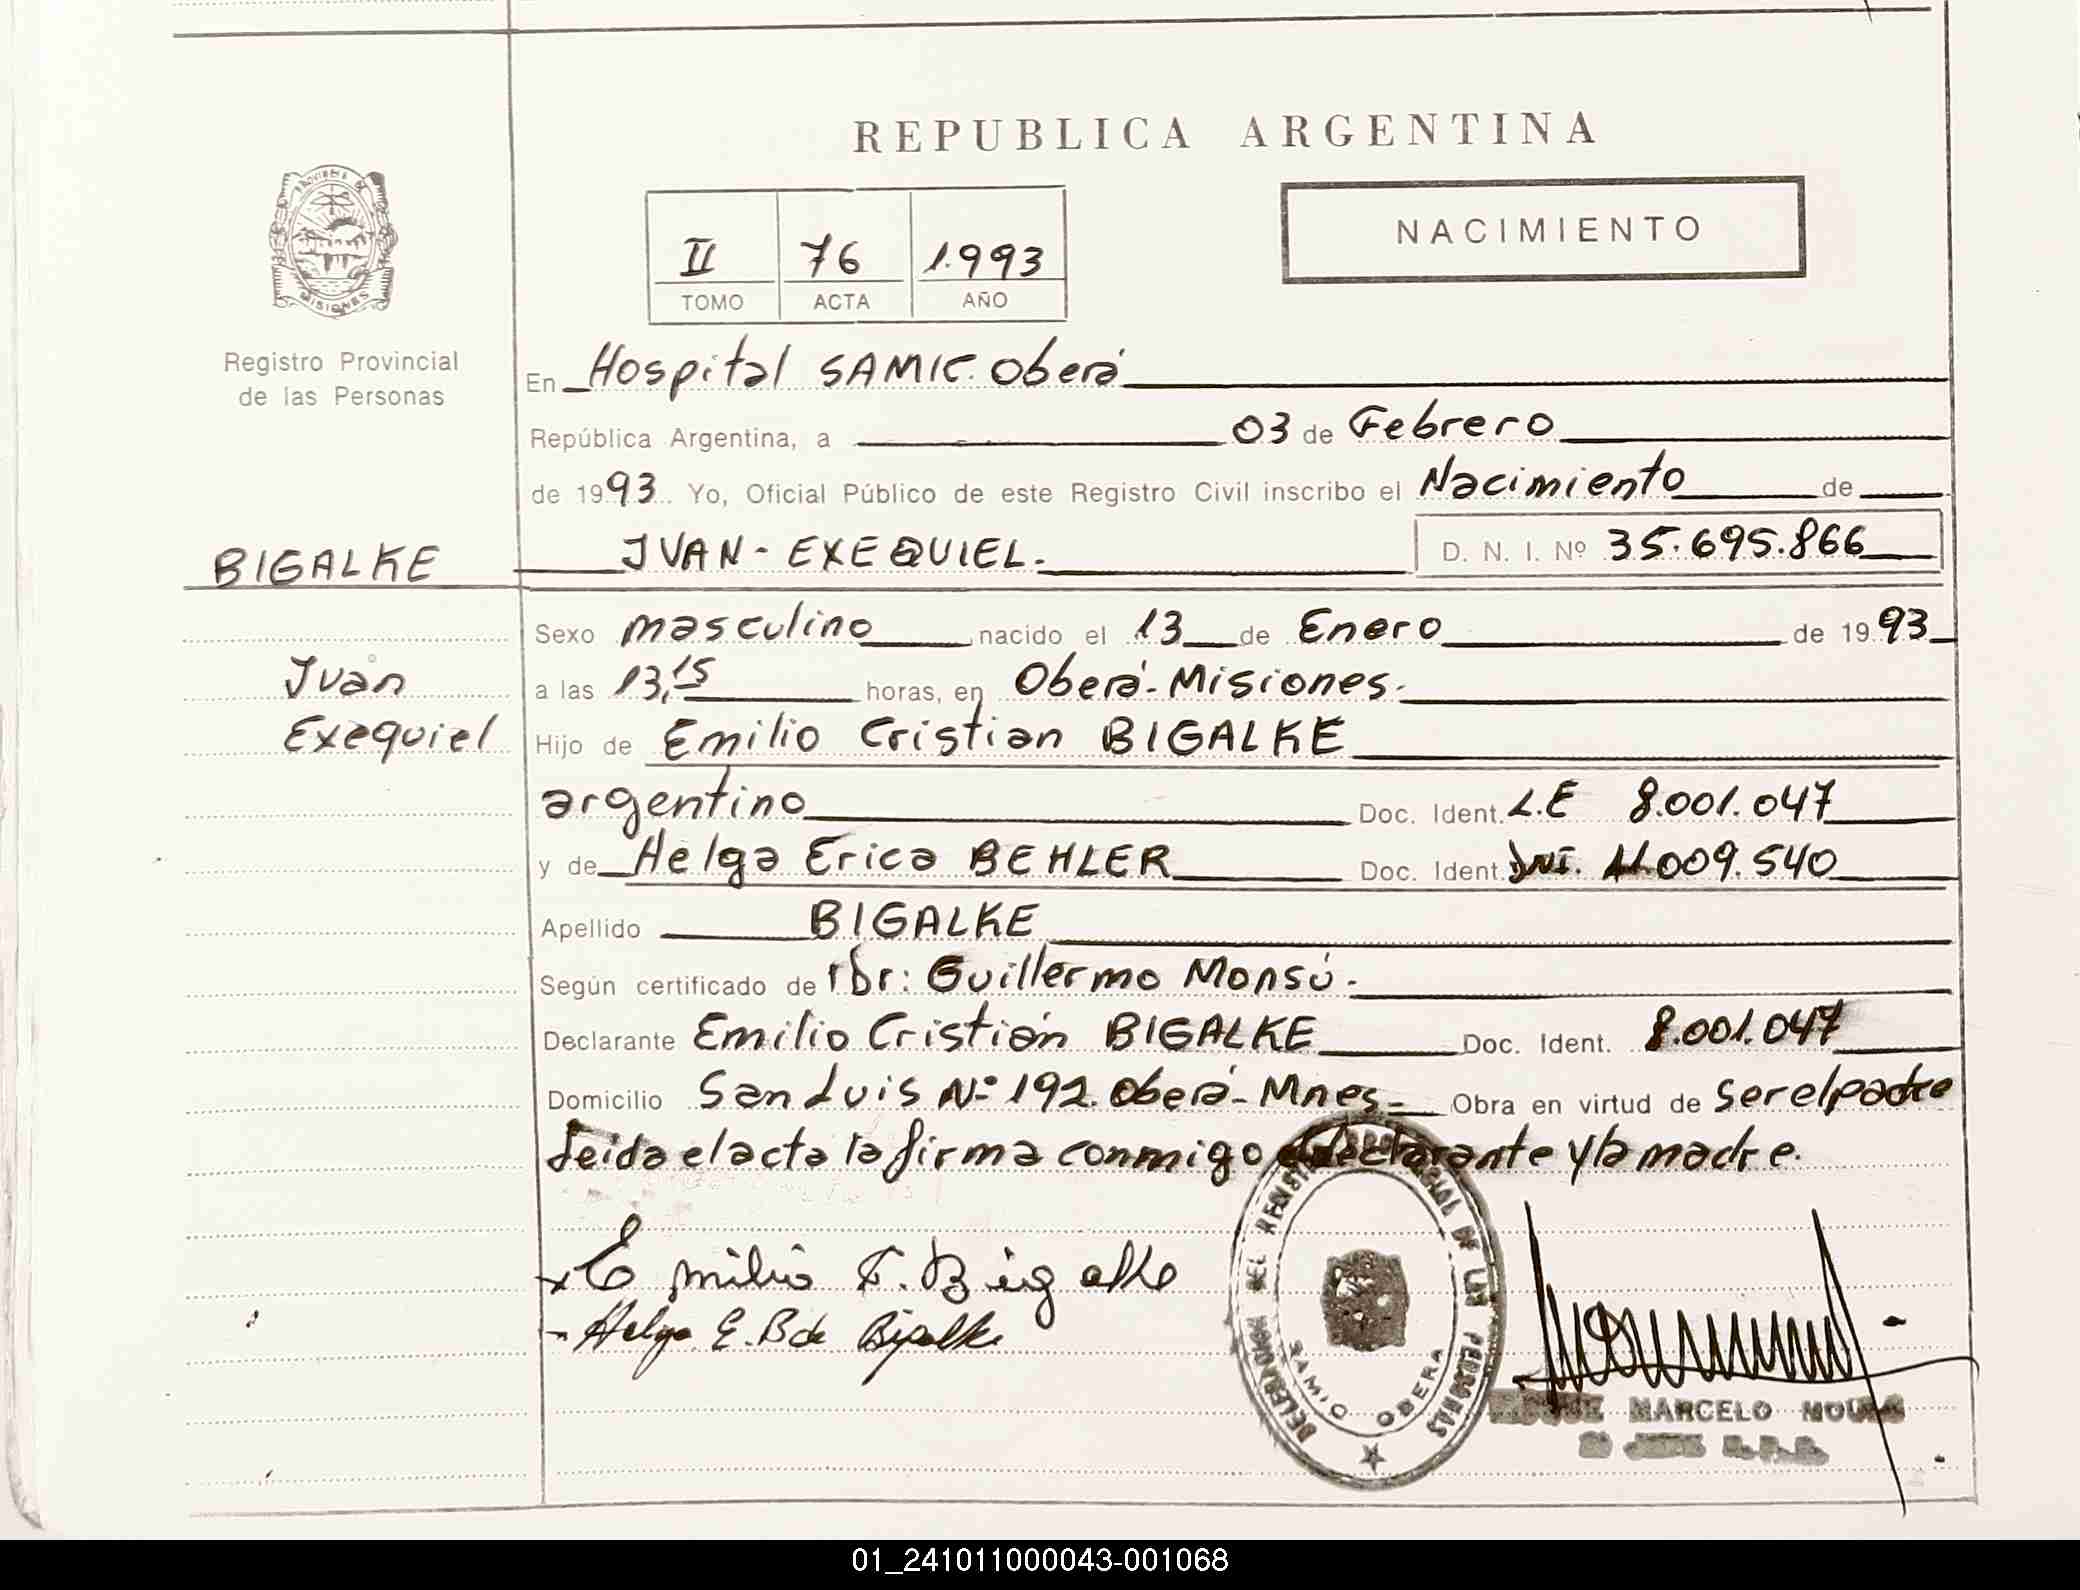 REPUBLICA ARGENTINA
PROVINCIA DE
MISIONES
Registro Provincial
de las Personas
II 76 1.993
TOMO ACTA AÑO
NACIMIENTO
En Hospital SAMIC. Oberá
República Argentina, a 03 de Febrero
de 1993 Yo, Oficial Público de este Registro Civil inscribo el Nacimiento de
BIGALKE IVAN - EXEQUIEL. D. N. I. Nº 35.695.866
Sexo masculino nacido el 13 de Enero de 1993
Iván a las 13,15 horas, en Oberá - Misiones.
Exequiel Hijo de Emilio Cristian BIGALKE
argentino Doc. Ident. L.E 8.001.047
y de Helga Erica BEHLER Doc. Ident. DNI. 11.009.540
Apellido BIGALKE
Según certificado de Dr: Guillermo Monsú.
Declarante Emilio Cristián BIGALKE Doc. Ident. 8.001.047
Domicilio San Luis Nº 192. Oberá - Mnes - Obra en virtud de ser el padre
Leida el acta la firma conmigo el declarante y la madre.
Emilio C. Bigalke
Helga E. B de Bigalke
DELEGACION DEL REGISTRO PROVINCIAL DE LAS PERSONAS
SAMIC OBERA
MARCELO
01_241011000043-001068